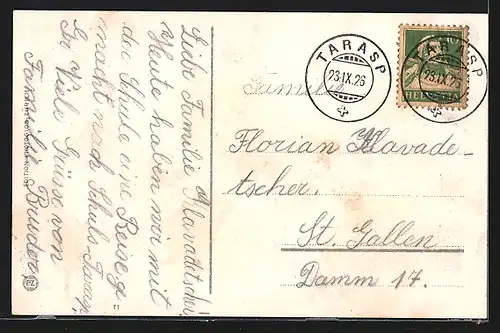 Liebe Familie Klavadetscher!
Heute haben wir mit
der Schule eine Reise ge=
macht nach Schuls-Tarasp
Gr. Viele Grüsse von
Bruder
TARASP
23.IX.26
TARASP
23.IX.26
HELVETIA
Familie
Florian Klavade-
tscher.
St. Gallen
Damm 17.